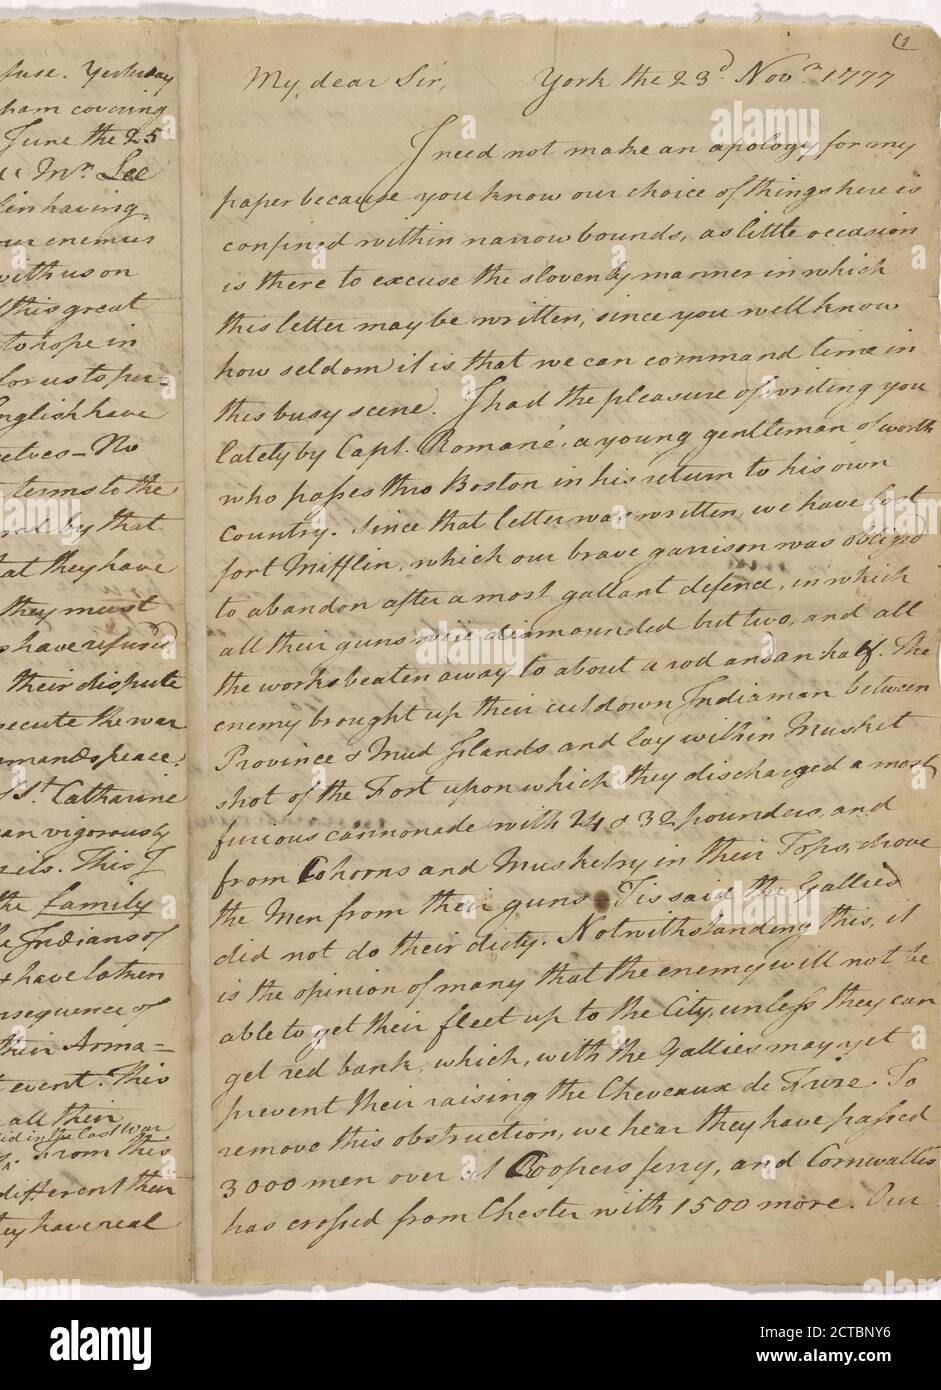 fuse. Yesterday
ham covering
June the 25
Mr. Lee
having
our enemies
with us on
this great
to hope in
for us to per-
English have
selves - No
terms to the
by that
that they have
they must
have refused
their dispute
the war
peace.
St. Catharine
can vigorously
This I
the family
Indians of
have lotten
nsequence of
their Arma-
event. This
all their
in the Last War
From this
different their
they have real
(1
My dear Sir, York the 23d. Novr. 1777
I need not make an apology for my
paper because you know our choice of things here is
confined within narrow bounds, as little occasion
is there to excuse the slovenly manner in which
this letter may be written, since you well know
how seldom it is that we can command time in
this busy scene. I had the pleasure of writing you
lately by Capt. Romané, a young gentleman of worth
who passes thro Boston in his return to his own
Country. Since that letter was written, we have lost
fort Mifflin, which our brave garrison was obliged
to abandon after a most gallant defence, in which
all their guns were dismounded but two, and all
the works beaten away to about a rod and an half. The
enemy brought up their cut down Indiaman between
Province & Mud Islands and lay within Musket
shot of the Fort upon which they discharged a most
furious cannonade with 24 & 32 pounders, and
from Cohorns and Musketry in their Tops, drove
the Men from their guns. Tis said the Gallies
did not do their duty. Notwithstanding this, it
is the opinion of many that the enemy will not be
able to get their fleet up to the City, unless they can
get red bank, which, with the Gallies may yet
prevent their raising the Cheveaux de Frize. To
remove this obstruction, we hear they have passed
3000 men over at Coopers ferry, and Cornwallis
has crossed from Chester with 1500 more. Our
alamy
alamy
Image ID: 2CTBNY6
www.alamy.com